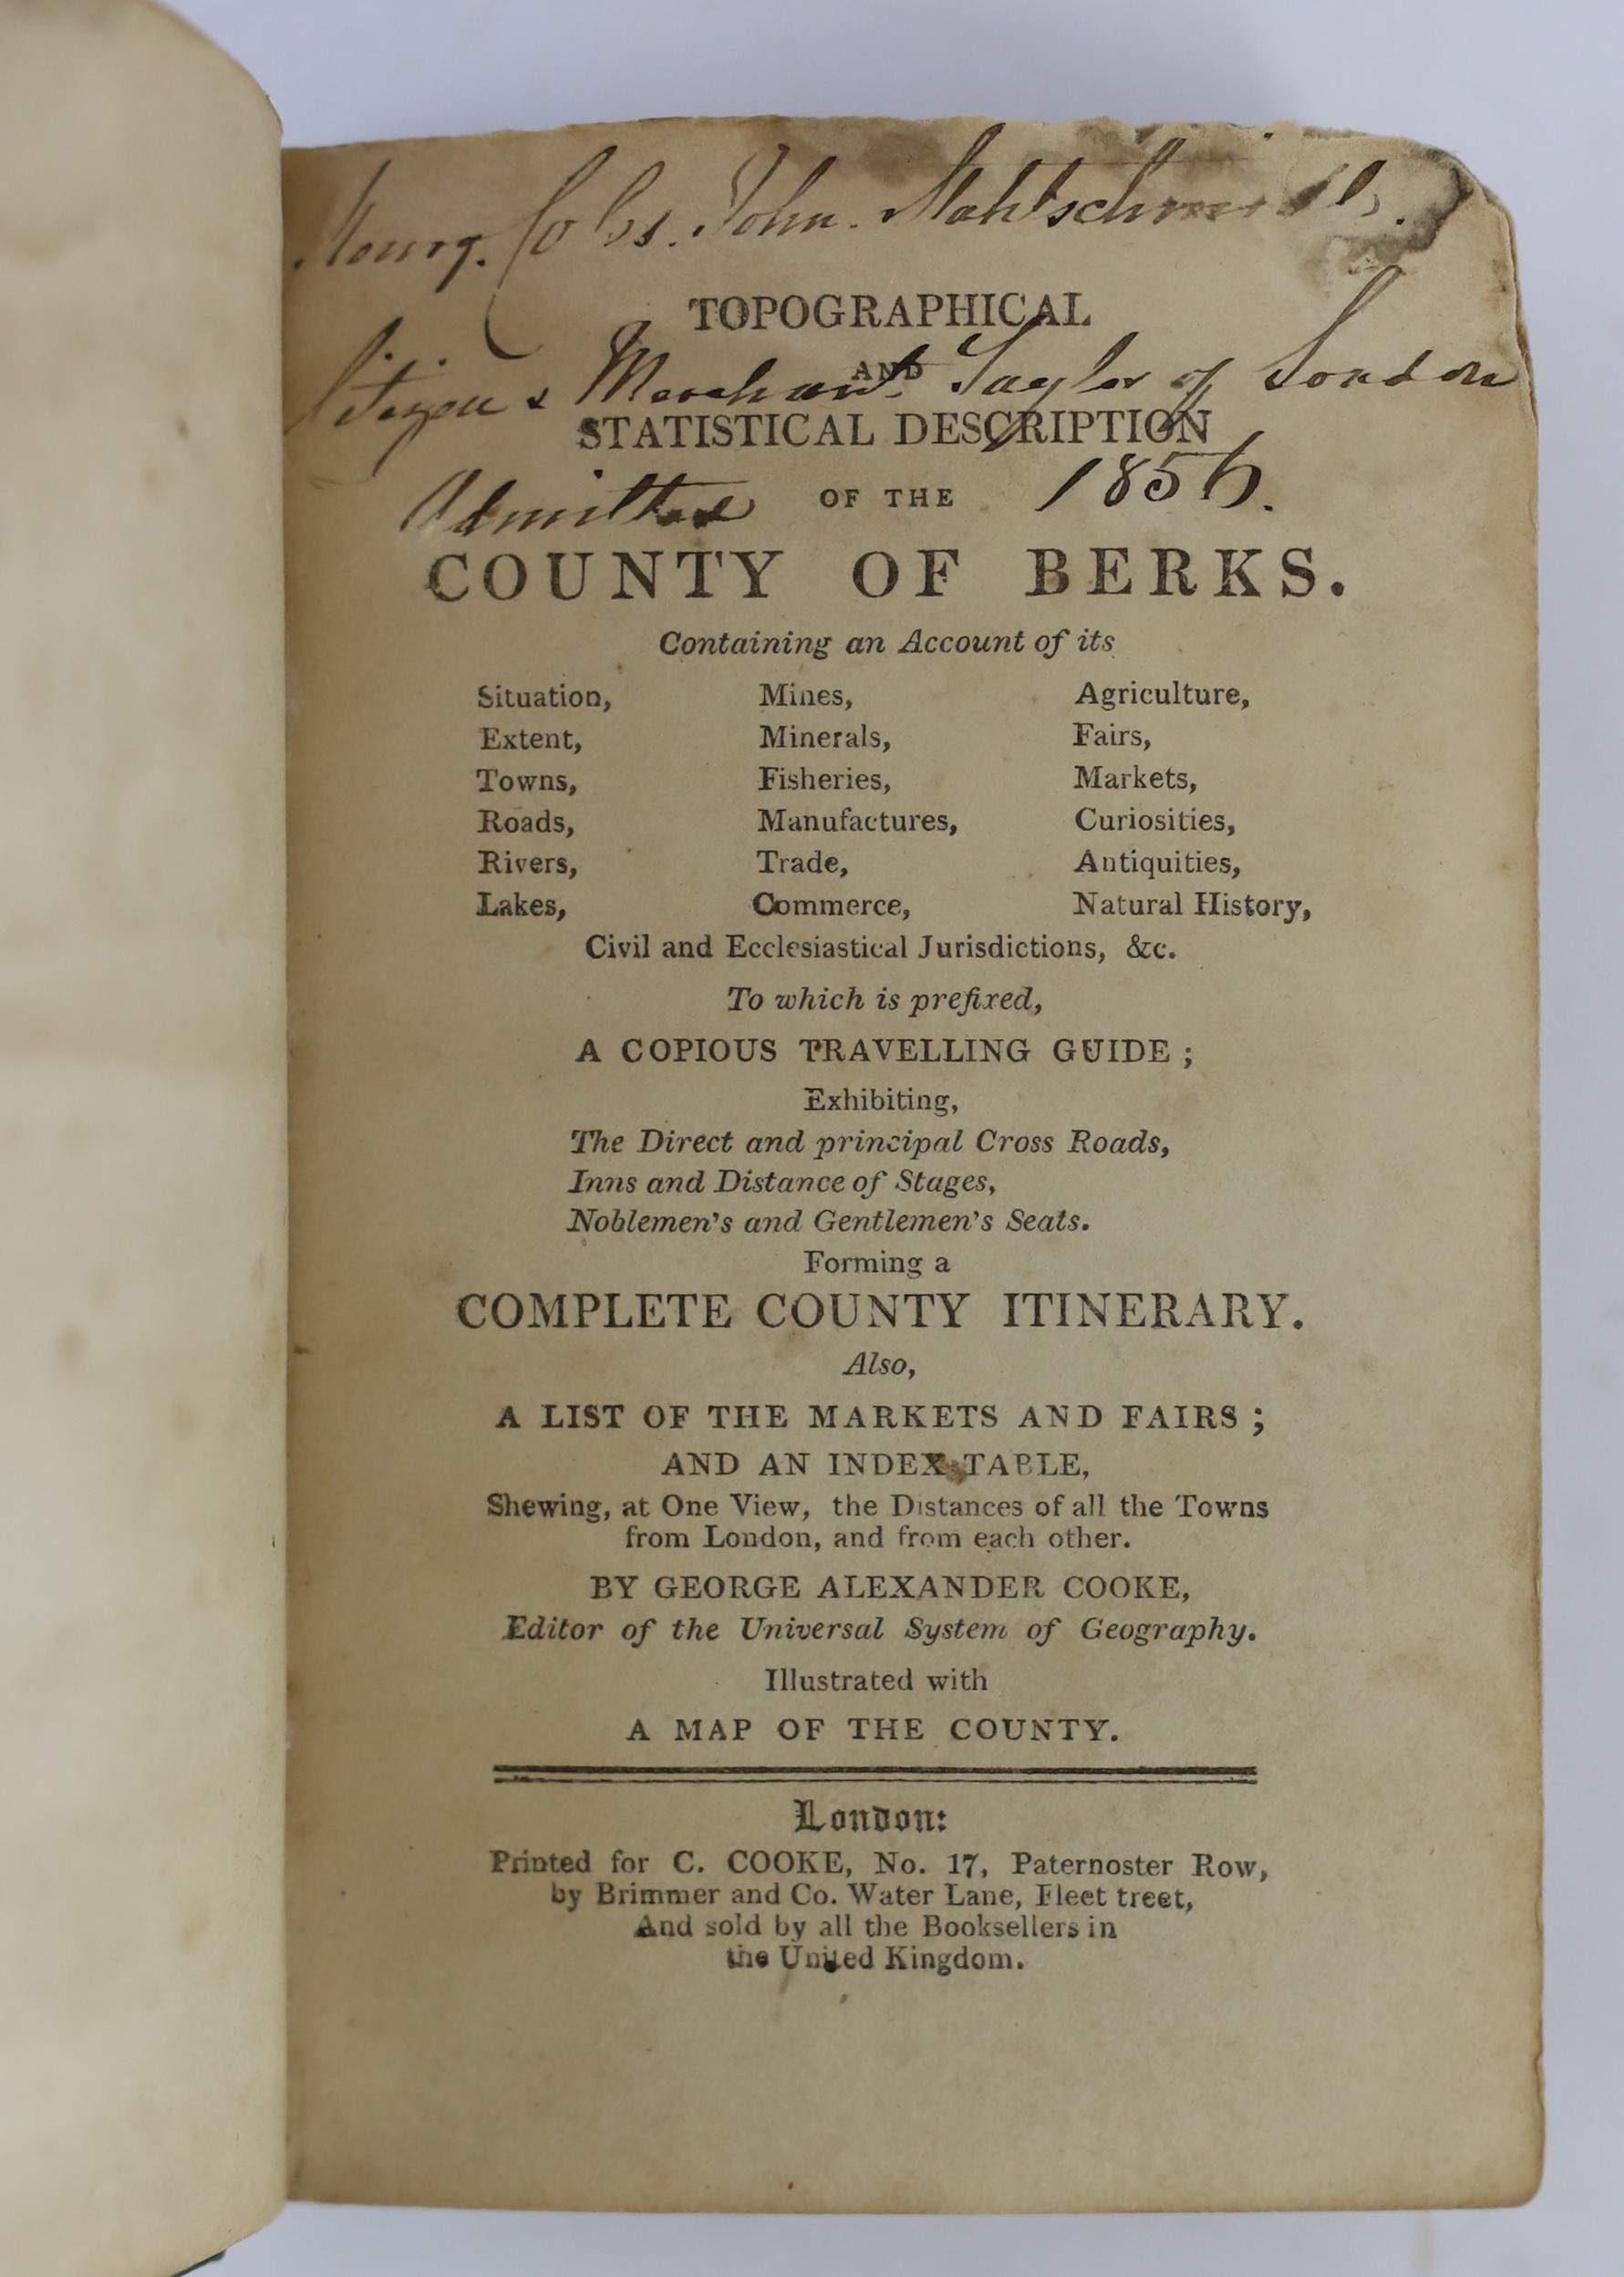 John.
TOPOGRAPHICAL
AND
Citizen & Merchant Taylor of London
STATISTICAL DESCRIPTION
Admitted OF THE 1856.
COUNTY OF BERKS.
Containing an Account of its
Situation, Mines, Agriculture,
Extent, Minerals, Fairs,
Towns, Fisheries, Markets,
Roads, Manufactures, Curiosities,
Rivers, Trade, Antiquities,
Lakes, Commerce, Natural History,
Civil and Ecclesiastical Jurisdictions, &c.
To which is prefixed,
A COPIOUS TRAVELLING GUIDE ;
Exhibiting,
The Direct and principal Cross Roads,
Inns and Distance of Stages,
Noblemen's and Gentlemen's Seats.
Forming a
COMPLETE COUNTY ITINERARY.
Also,
A LIST OF THE MARKETS AND FAIRS ;
AND AN INDEX TABLE,
Shewing, at One View, the Distances of all the Towns
from London, and from each other.
BY GEORGE ALEXANDER COOKE,
Editor of the Universal System of Geography.
Illustrated with
A MAP OF THE COUNTY.
London:
Printed for C. COOKE, No. 17, Paternoster Row,
by Brimmer and Co. Water Lane, Fleet treet,
And sold by all the Booksellers in
the United Kingdom.